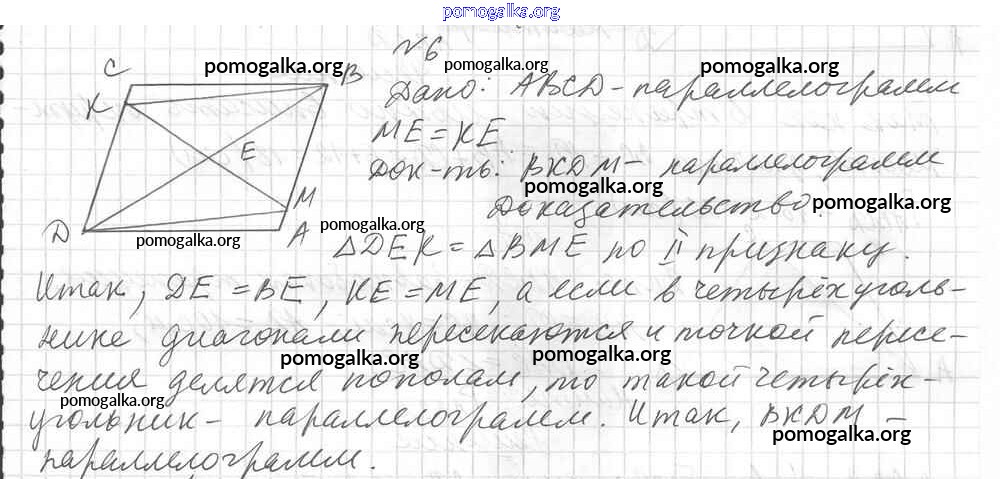 pomogalka.org
№6
C
B
pomogalka.org
pomogalka.org
pomogalka.org
Дано: ABCD - параллелограмм
K
ME = KE
E
Док-ть: BKDM - параллелограмм
pomogalka.org
M
Доказательство:
pomogalka.org
D
A
pomogalka.org
pomogalka.org
△DEK = △BME по II признаку.
Итак, DE = BE, KE = ME, а если в четырёхуголь-
нике диагонали пересекаются и точкой пересе-
pomogalka.org
pomogalka.org
чения делятся пополам, то такой четырёх-
pomogalka.org
угольник - параллелограмм. Итак, BKDM -
pomogalka.org
параллелограмм.